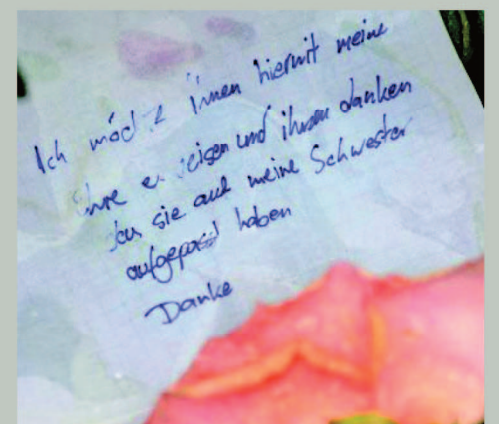 Ich möchte ihnen hiermit meine
ihre erweisen und ihnen danken
das sie auf meine Schwester
aufgepasst haben
Danke